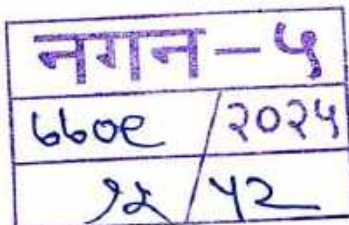 नगन-५
७७०९ / २०२५
/ ५२